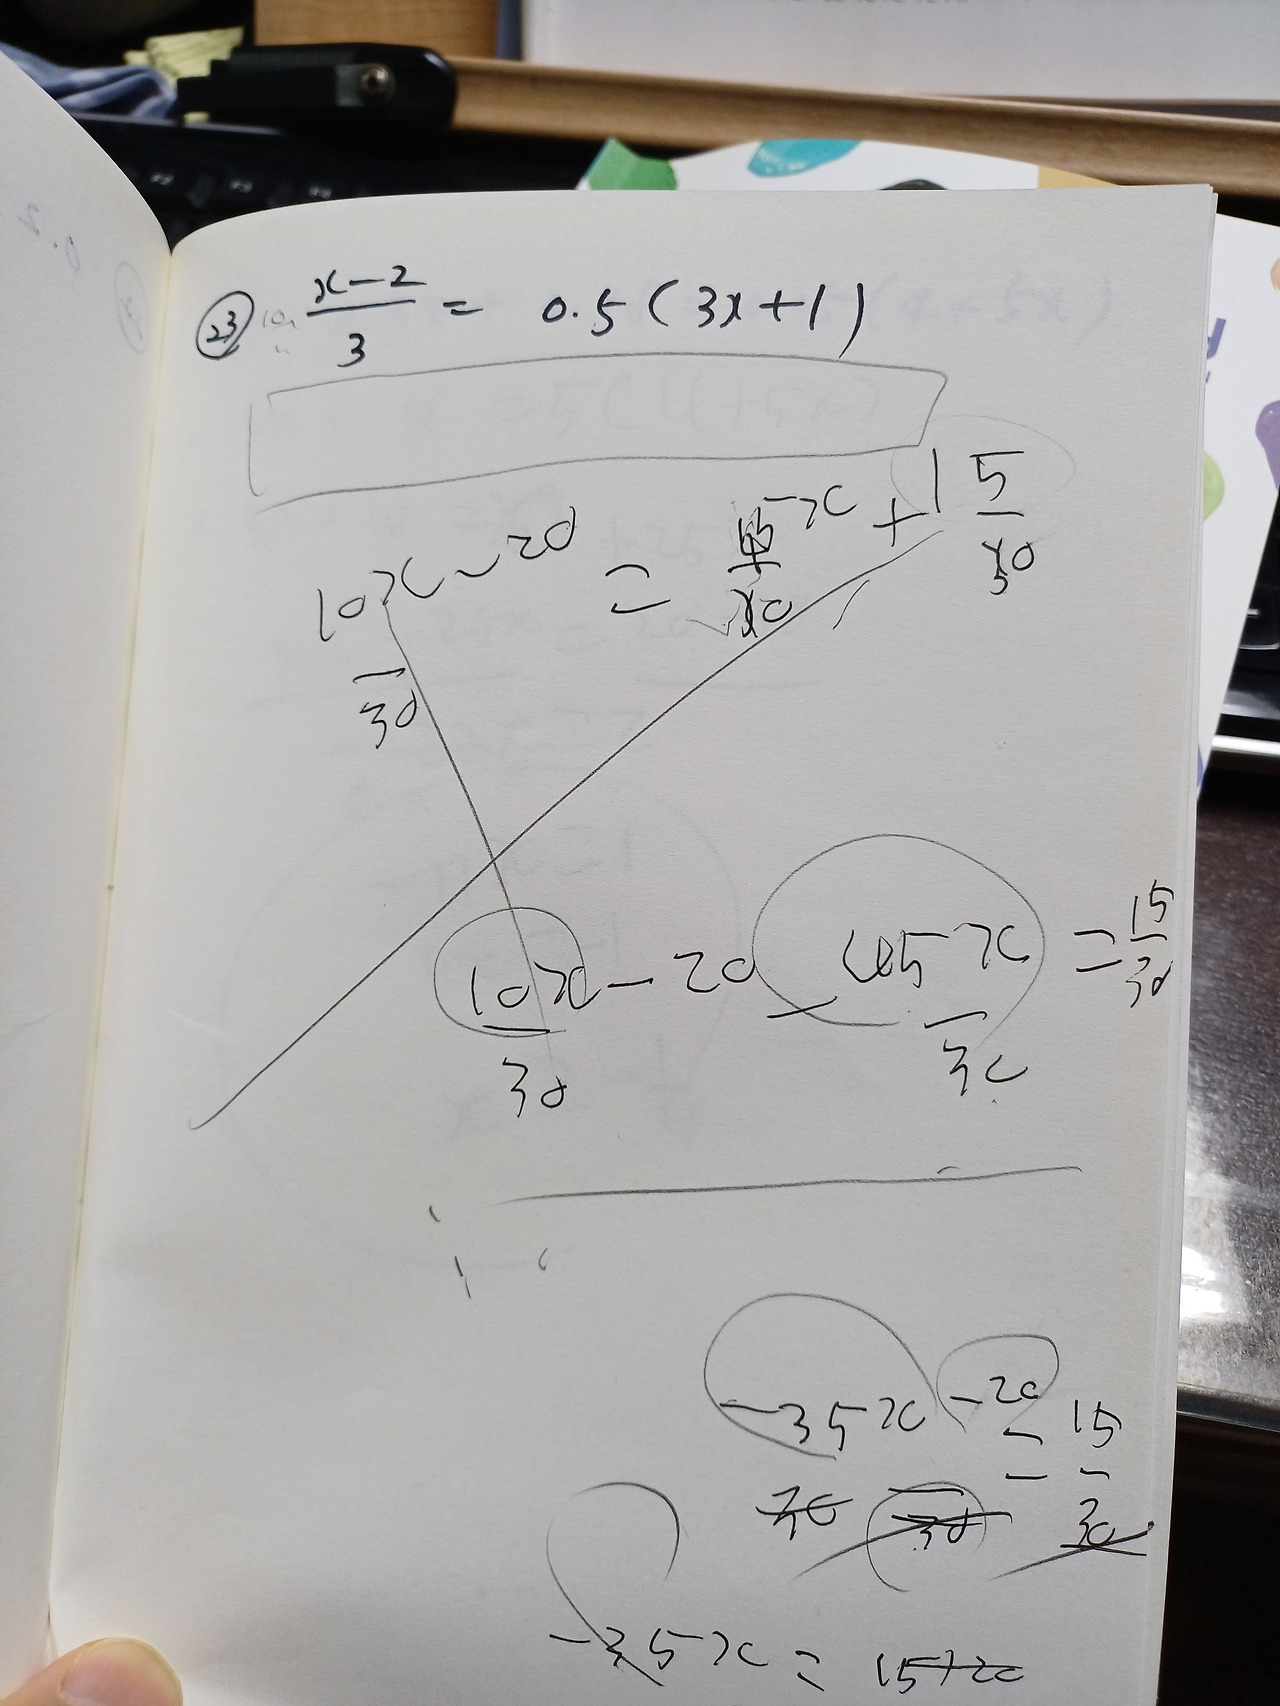 23 x-2/3 = 0.5(3x+1)
10x-20/30 = 45x/30 + 15/30
10x-20/30 - 45x/30 = 15/30
-35x/30 -20/30 = 15/30
-35x = 15+20